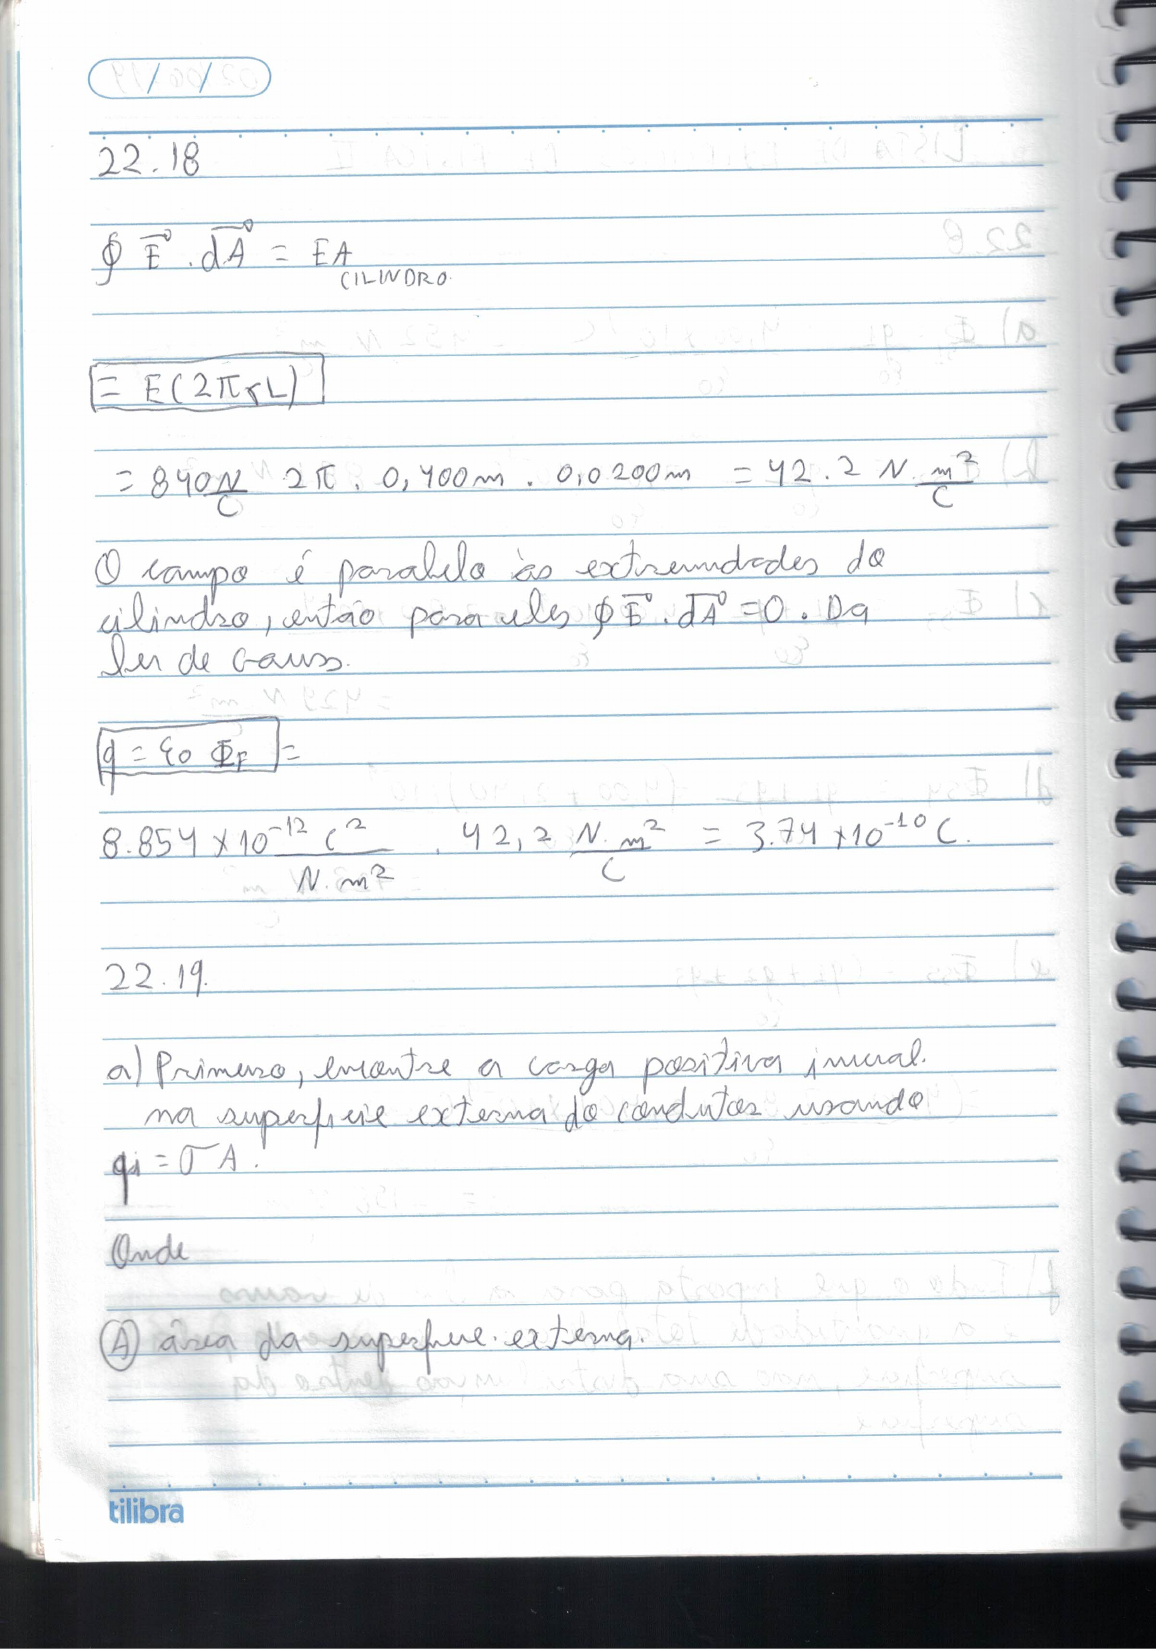 22.18
∮ E⃗ . dA⃗ = EA
CILINDRO.
= E(2πrL)
= 840 N/C 2π . 0,400m . 0,0200m = 42.2 N.m²/C
O campo é paralelo às extremidades do
cilindro, então para eles ∮ E⃗ . dA⃗ = 0 . Da
lei de Gauss.
q = ε0 ΦE =
8.854 x 10⁻¹² C²/N.m² . 42,2 N.m²/C = 3.74 x 10⁻¹⁰ C.
22.19.
a) Primeiro, encontre a carga positiva inicial.
na superfície externa do condutor usando
qi = σA.
Onde
(A) área da superfície externa.
tilibra